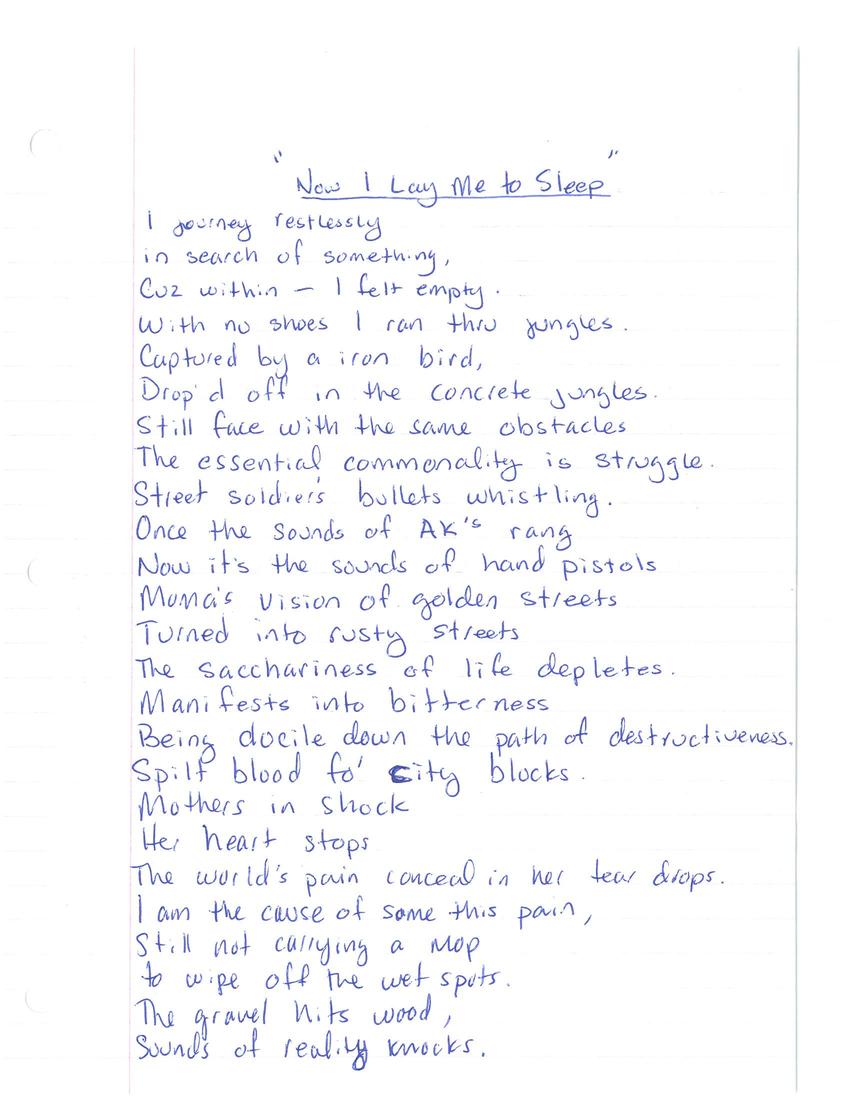 "Now I Lay Me to Sleep"
I journey restlessly
in search of something,
Cuz within – I felt empty.
With no shoes I ran thru jungles.
Captured by a iron bird,
Drop'd off in the concrete jungles.
Still face with the same obstacles
The essential commonality is struggle.
Street soldier's bullets whistling.
Once the sounds of AK's rang
Now it's the sounds of hand pistols
Moma's vision of golden streets
Turned into rusty streets
The sacchariness of life depletes.
Manifests into bitterness
Being docile down the path of destructiveness.
Spilt blood fo' city blocks.
Mothers in shock
Her heart stops
The world's pain conceal in her tear drops.
I am the cause of some this pain,
Still not carrying a mop
to wipe off the wet spots.
The gravel hits wood,
Sounds of reality knocks.